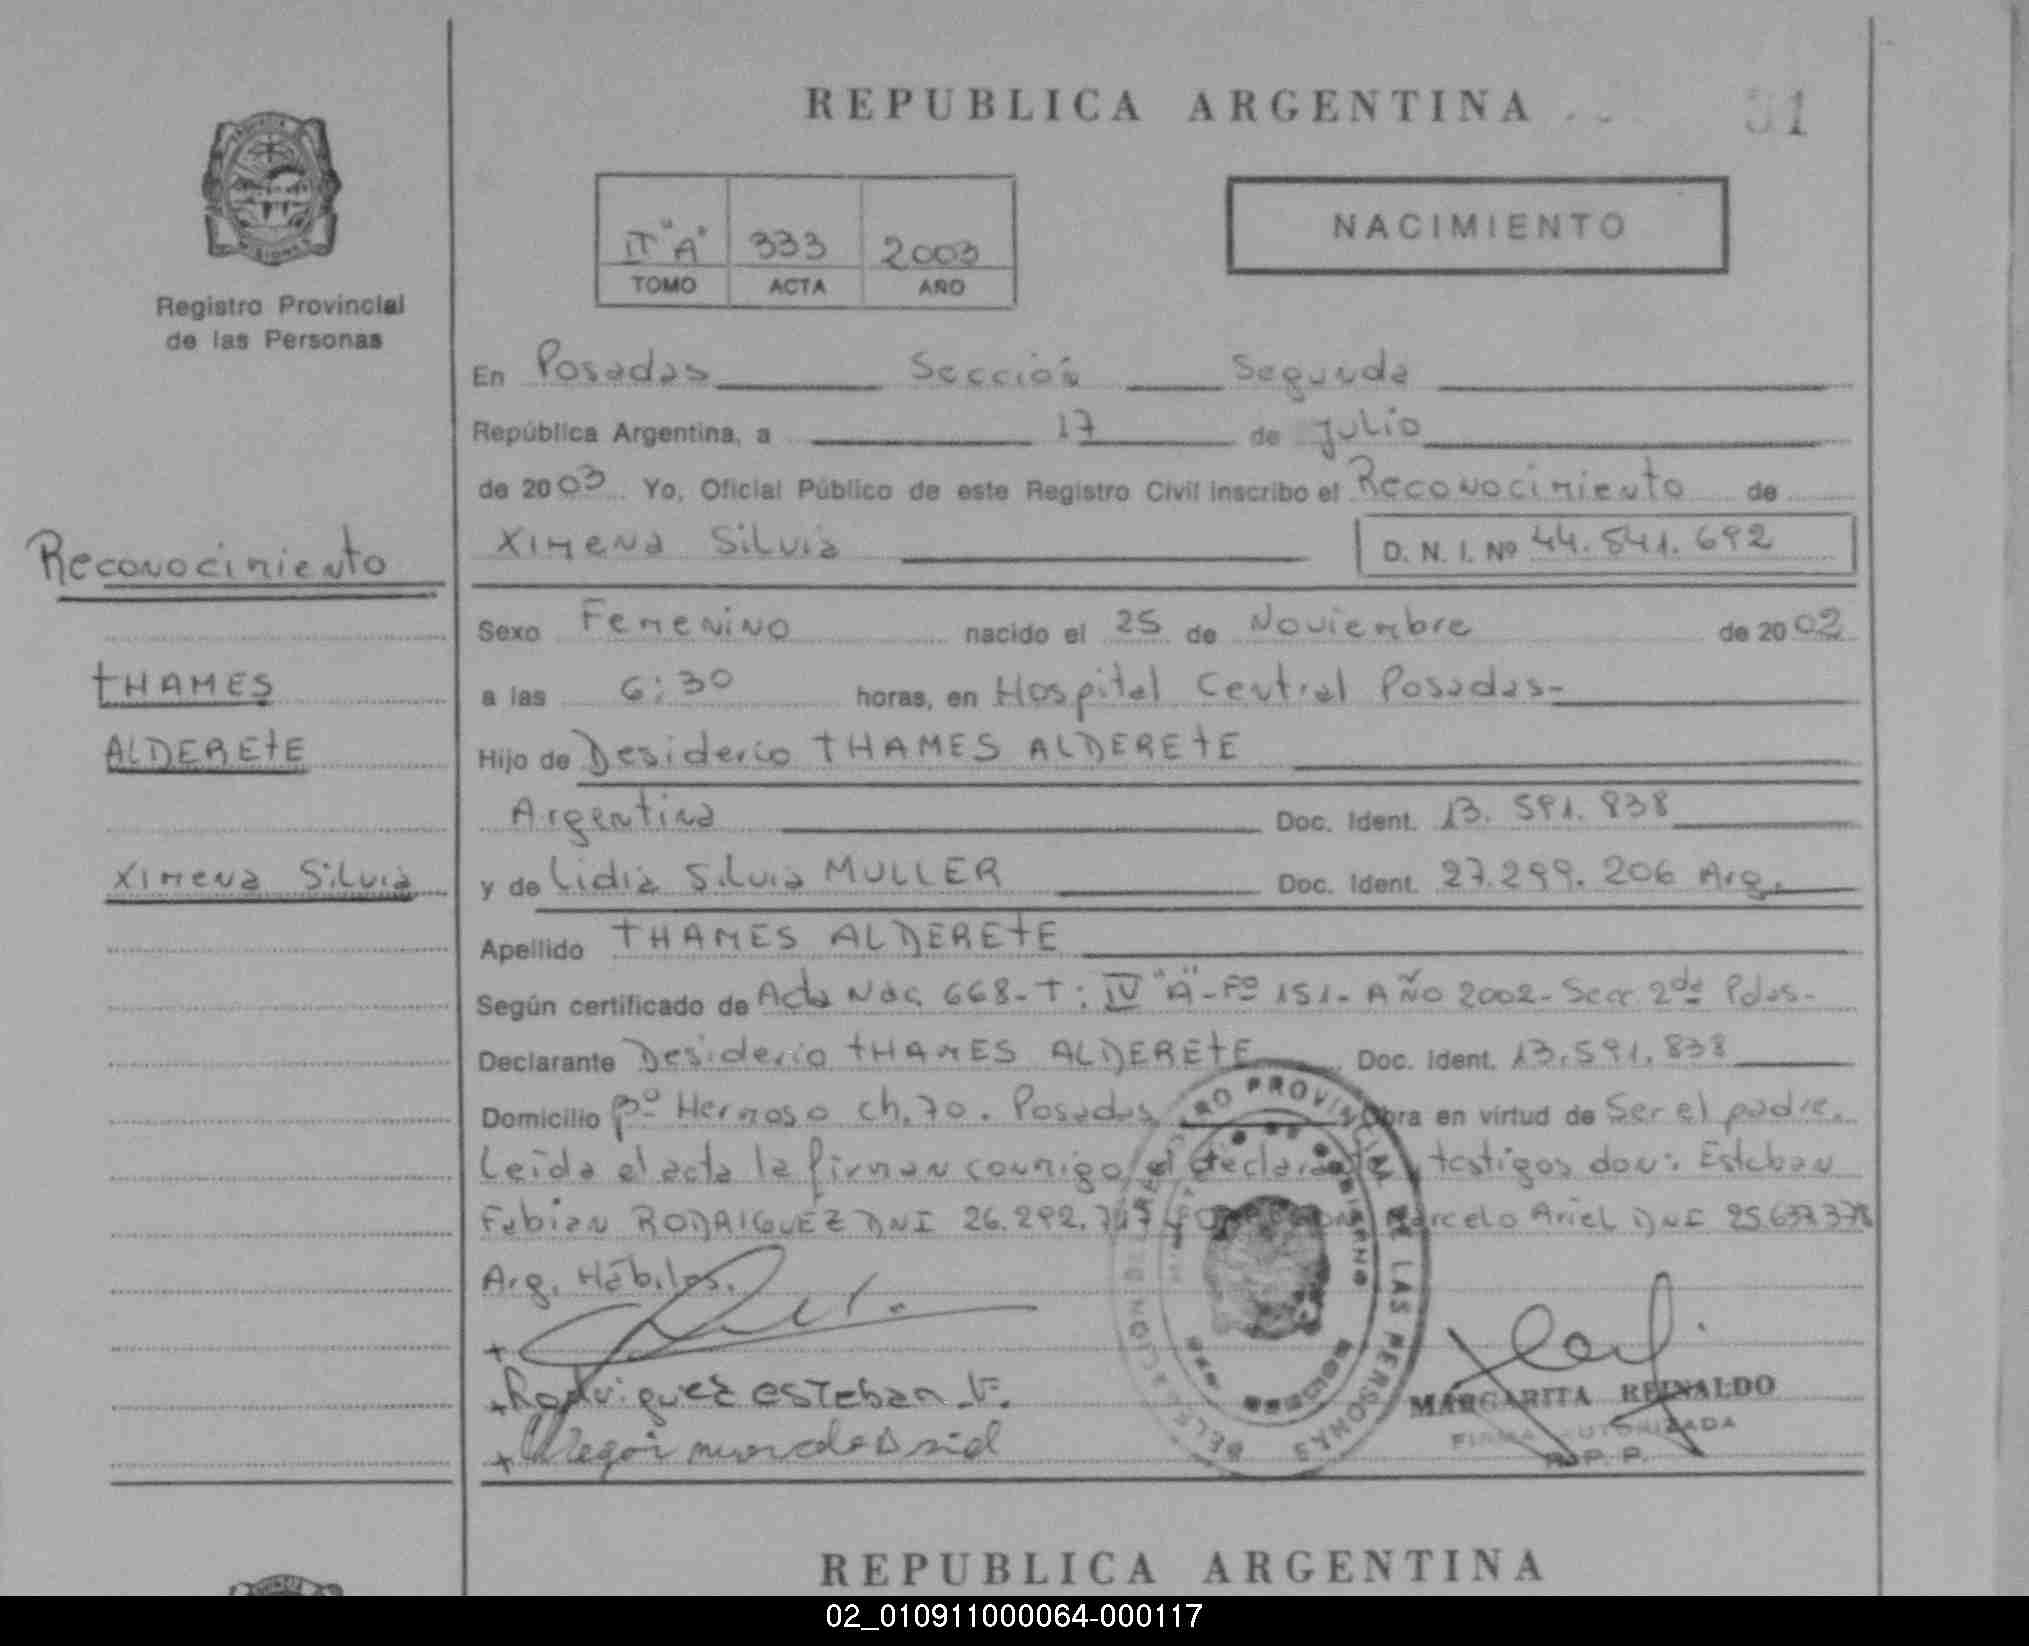 REPUBLICA ARGENTINA
31
II "A" 333 2003
TOMO ACTA AÑO
NACIMIENTO
Registro Provincial
de las Personas
En Posadas Sección Segunda
República Argentina, a 17 de Julio
de 2003 Yo, Oficial Público de este Registro Civil inscribo el Reconocimiento de
Ximena Silvia D. N. I. Nº 44.541.692
Reconocimiento
THAMES
ALDERETE
Ximena Silvia
Sexo Femenino nacido el 25 de Noviembre de 2002
a las 6:30 horas, en Hospital Central Posadas-
Hijo de Desiderio THAMES ALDERETE
Argentina Doc. Ident. 13.591.838
y de Lidia Silvia MULLER Doc. Ident. 27.299.206 Arg.
Apellido THAMES ALDERETE
Según certificado de Acta Nac. 668-T: IV "A"-Fº 151- AÑO 2002- Secc. 2da Pdas-
Declarante Desiderio THAMES ALDERETE Doc. Ident. 13.591.838
Domicilio Bº Hermoso ch. 70. Posadas Obra en virtud de Ser el padre.
Leída el acta la firman conmigo el declarante testigos don: Esteban
Fabian RODRIGUEZ DNI 26.292. Marcelo Ariel DNI
Arg. Hábiles.
+
+ Rodriguez esteban F.
+
REGISTRO PROVINCIAL DE LAS PERSONAS
MARGARITA REINALDO
FIRMA AUTORIZADA
R. P. P.
REPUBLICA ARGENTINA
02_010911000064-000117